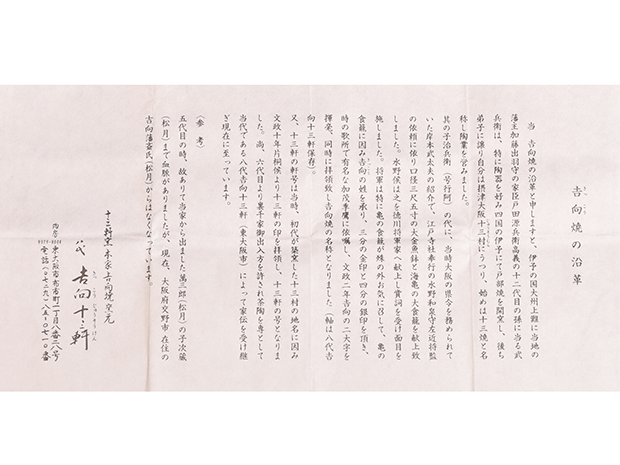 吉向焼の沿革
当 吉向焼の沿革と申しますと、伊予の国大州上難に当地の
藩主加藤出羽守の家臣戸田源兵衛高義の十二代目の孫に当る式
兵衛は、特に陶器を好み四国の伊予にて戸部焼を開窯し、後ち
弟子に譲り自分は摂津大阪十三村にうつり、始めは十三焼と名
称し陶業を営みました。
其の子治兵衛(号行阿)の代に、当時大阪の県令を務められて
いた岸本武太夫の紹介で、江戸寺社奉行の水野和泉守左近将監
の依頼に依り口径三尺五寸の大金魚鉢と海亀の大食籠を献上致
しました。水野侯は之を徳川将軍家へ献上し賞詞を受け面目を
施しました。将軍は特に亀の食籠が殊の外お気に召して、亀の
食籠に因み吉向の姓を承り、三分の金印と四分の銀印を頂き、
時の歌所で有名な加茂季鷹に依嘱し、文政二年吉向の二大字を
揮毫、同時に拝領致し吉向焼の名称となりました(一軸は八代吉
向十三軒保存)。
又、十三軒の軒号は当時、初代が築窯した十三村の地名に因み
文政十年片桐侯より十三軒の印を拝領し、十三軒の号となりま
した。尚、六代目より裏千家御出入方を許され茶陶を専として
当代である八代吉向十三軒(東大阪市)によって家伝を受け継
ぎ現在に至っています。
(参 考)
五代目の時、故ありて当家から出ました萬三郎(松月)の子次蔵
(松月)まで血脈がありましたが、現在、大阪府交野市 在住の
吉向藩斎氏(松月)からはなくなっています。
十三軒窯 本家吉向焼窯元
八代 吉向十三軒
東大阪市布市町一丁目八番二八号
電話(〇七二九)八五‐〇七一〇番